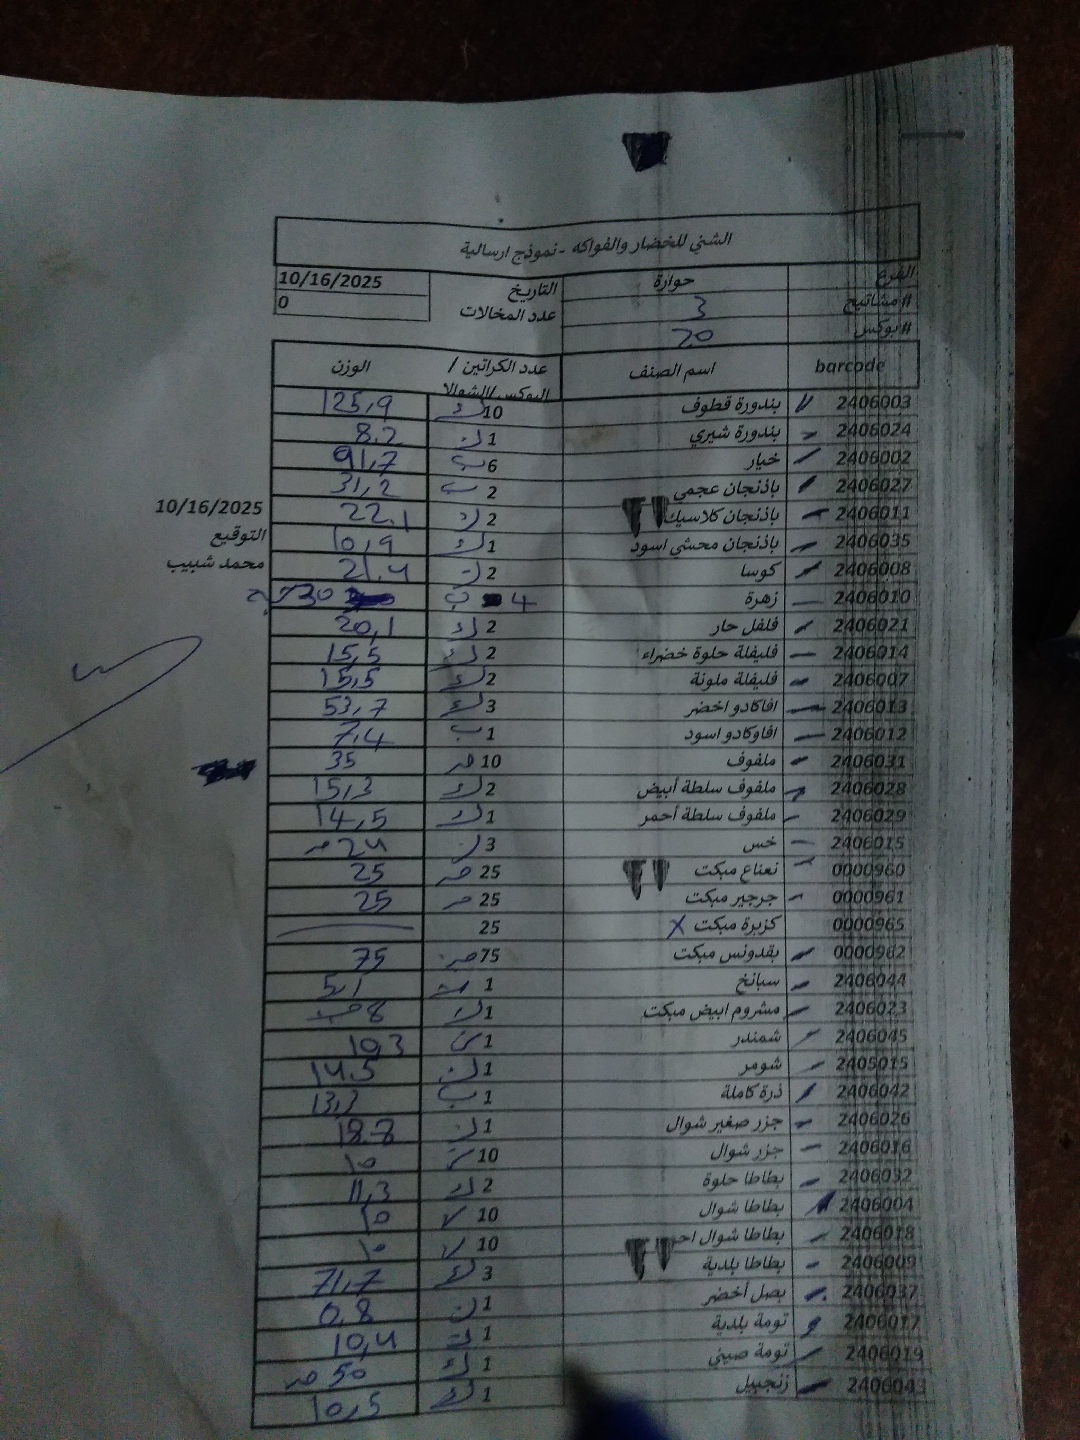 الشني للخضار والفواكه - نموذج ارسالية
الفرع حوارة التاريخ 10/16/2025
#مشاتيح 3 عدد المخالات 0
#بوكس 20
barcode اسم الصنف عدد الكراتين / البوكس/الشوالا الوزن
2406003 بندورة قطوف 10 ك 125,9
2406024 بندورة شيري 1 8.2
2406002 خيار 6 ب 91,7
2406027 باذنجان عجمي 2 ب 31,2
2406011 باذنجان كلاسيك 2 22.1
2406035 باذنجان محشي اسود 1 ك 10,9
2406008 كوسا 2 21.4
2406010 زهرة 4 ب 30
2406021 فلفل حار 2 ك 20,1
2406014 فليفلة حلوة خضراء 2 ك 15,5
2406007 فليفلة ملونة 2 ك 15,5
2406013 افاكادو اخضر 3 ك 53,7
2406012 افاوكادو اسود 1 ب 7,4
2406031 ملفوف 10 35
2406028 ملفوف سلطة أبيض 2 ك 15,3
2406029 ملفوف سلطة أحمر 1 ك 14,5
2406015 خس 3 24
0000960 نعناع مبكت 25 25
0000961 جرجير مبكت 25 25
0000965 كزبرة مبكت X 25
0000962 بقدونس مبكت 75 75
2406044 سبانخ 1 5,1
2406023 مشروم ابيض مبكت 1 ك 8
2406045 شمندر 1 10,3
2405015 شومر 1 14,5
2406042 ذرة كاملة 1 ب 13,3
2406026 جزر صغير شوال 1
2406016 جزر شوال 10 10
2406032 بطاطا حلوة 2 ك 11,3
2406004 بطاطا شوال 10 10
2406018 بطاطا شوال احم 10 10
2406009 بطاطا بلدية 3 ك 71,7
2406037 بصل أخضر 1 0,8
2406017 تومة بلدية 1 10,4
2406019 تومة صيني 1 ك 50
2406043 زنجبيل 1 ك 10,5
10/16/2025
التوقيع
محمد شبيب